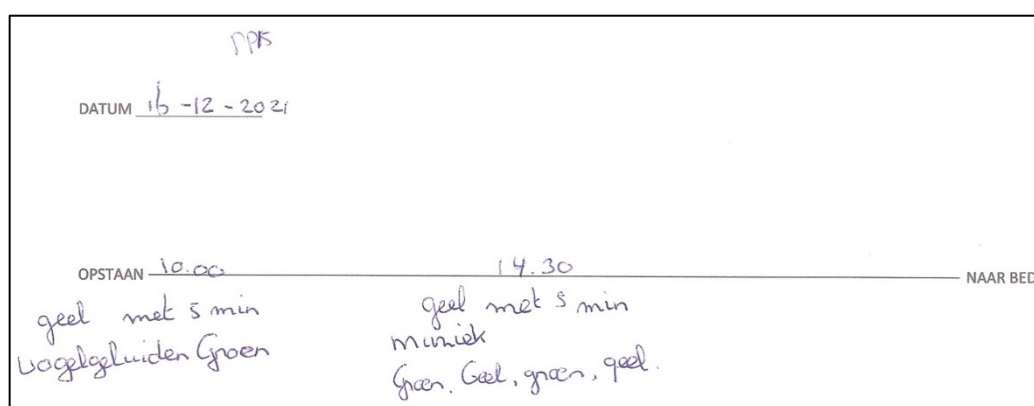 DATUM 16-12-2021
OPSTAAN 10.00 14.30 NAAR BED
geel met 5 min
vogelgeluiden Groen
geel met 5 min
muziek
Groen. Geel, groen, geel.